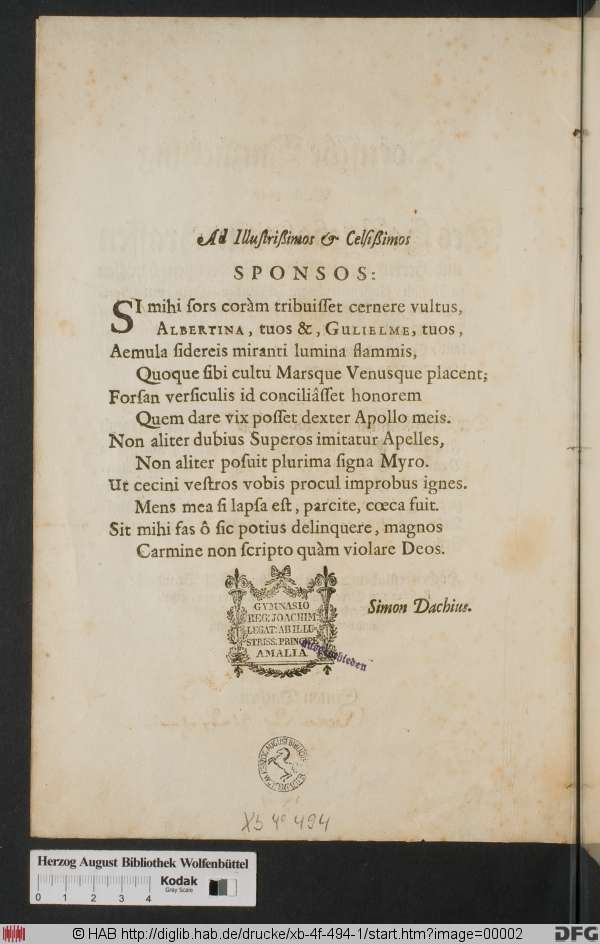 Ad Illustrißimos & Celsißimos
SPONSOS:
SI mihi sors coràm tribuisset cernere vultus,
ALBERTINA, tuos &, GULIELME, tuos,
Aemula sidereis miranti lumina flammis,
Quoque sibi cultu Marsque Venusque placent;
Forsan versiculis id conciliâsset honorem
Quem dare vix posset dexter Apollo meis.
Non aliter dubius Superos imitatur Apelles,
Non aliter posuit plurima signa Myro.
Ut cecini vestros vobis procul improbus ignes.
Mens mea si lapsa est, parcite, cœca fuit.
Sit mihi fas ô sic potius delinquere, magnos
Carmine non scripto quàm violare Deos.
Simon Dachius.
GYMNASIO
REG: JOACHIM:
LEGAT: AB ILLU-
STRISS. PRINCIPE
AMALIA
Ausgeschieden
Xb 4° 494
Herzog August Bibliothek Wolfenbüttel
0 1 2 3 4
Kodak
Gray Scale
© HAB http://diglib.hab.de/drucke/xb-4f-494-1/start.htm?image=00002
DFG